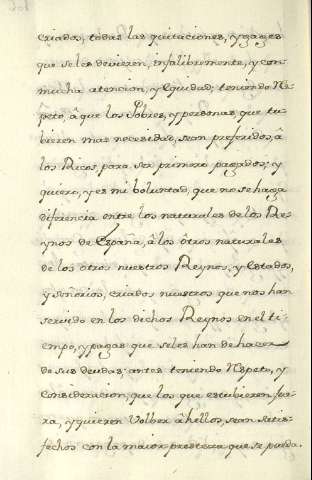 criados, todas las quitaciones, y gages
que seles devieren, infaliblemente, y con
mucha atencion, y Equidad; teniendo Res-
peto, â que los Pobres, y personas que tu-
bieren mas necesidad, sean preferidos, â
los Ricos para ser primero pagados; y
quiero, y es mi boluntad, que no se haga
diferencia entre los naturales de los Re-
ynos de España, â los ôtros naturales
de los otros nuestros Reynos, y Estados,
y señorios, criados nuestros que nos han
servido en los dichos Reynos en el ti-
empo, y pagas que seles han de hacer
de sus deudas: antes teniendo Respeto, y
Consideracion, que los que estubieren fue-
ra, y quieren Volber â hellos, sean satis-
fechos con la maior presteza que se pueda.